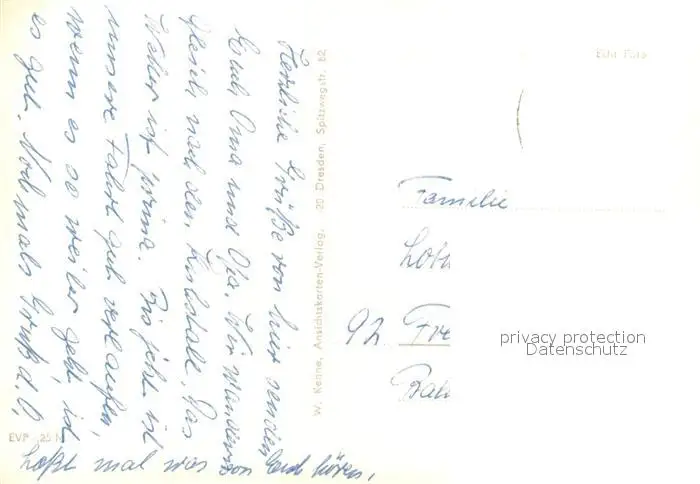 Herzliche Grüße von hier senden
Euch Oma und Opa. Wir wandern
gleich nach der Das
Wetter ist prima. Bis jetzt ist
unsere Fahrt gut verlaufen,
wenn es so weiter geht, ist
es gut. Nochmals Gruß d. O,
Laßt mal was von Euch hören,
EVP 25 M
W. Kenne, Ansichtskarten-Verlag, 20 Dresden, Spitzwegstr. 62
Echt Foto
Familie
92 Fre
privacy protection
Datenschutz